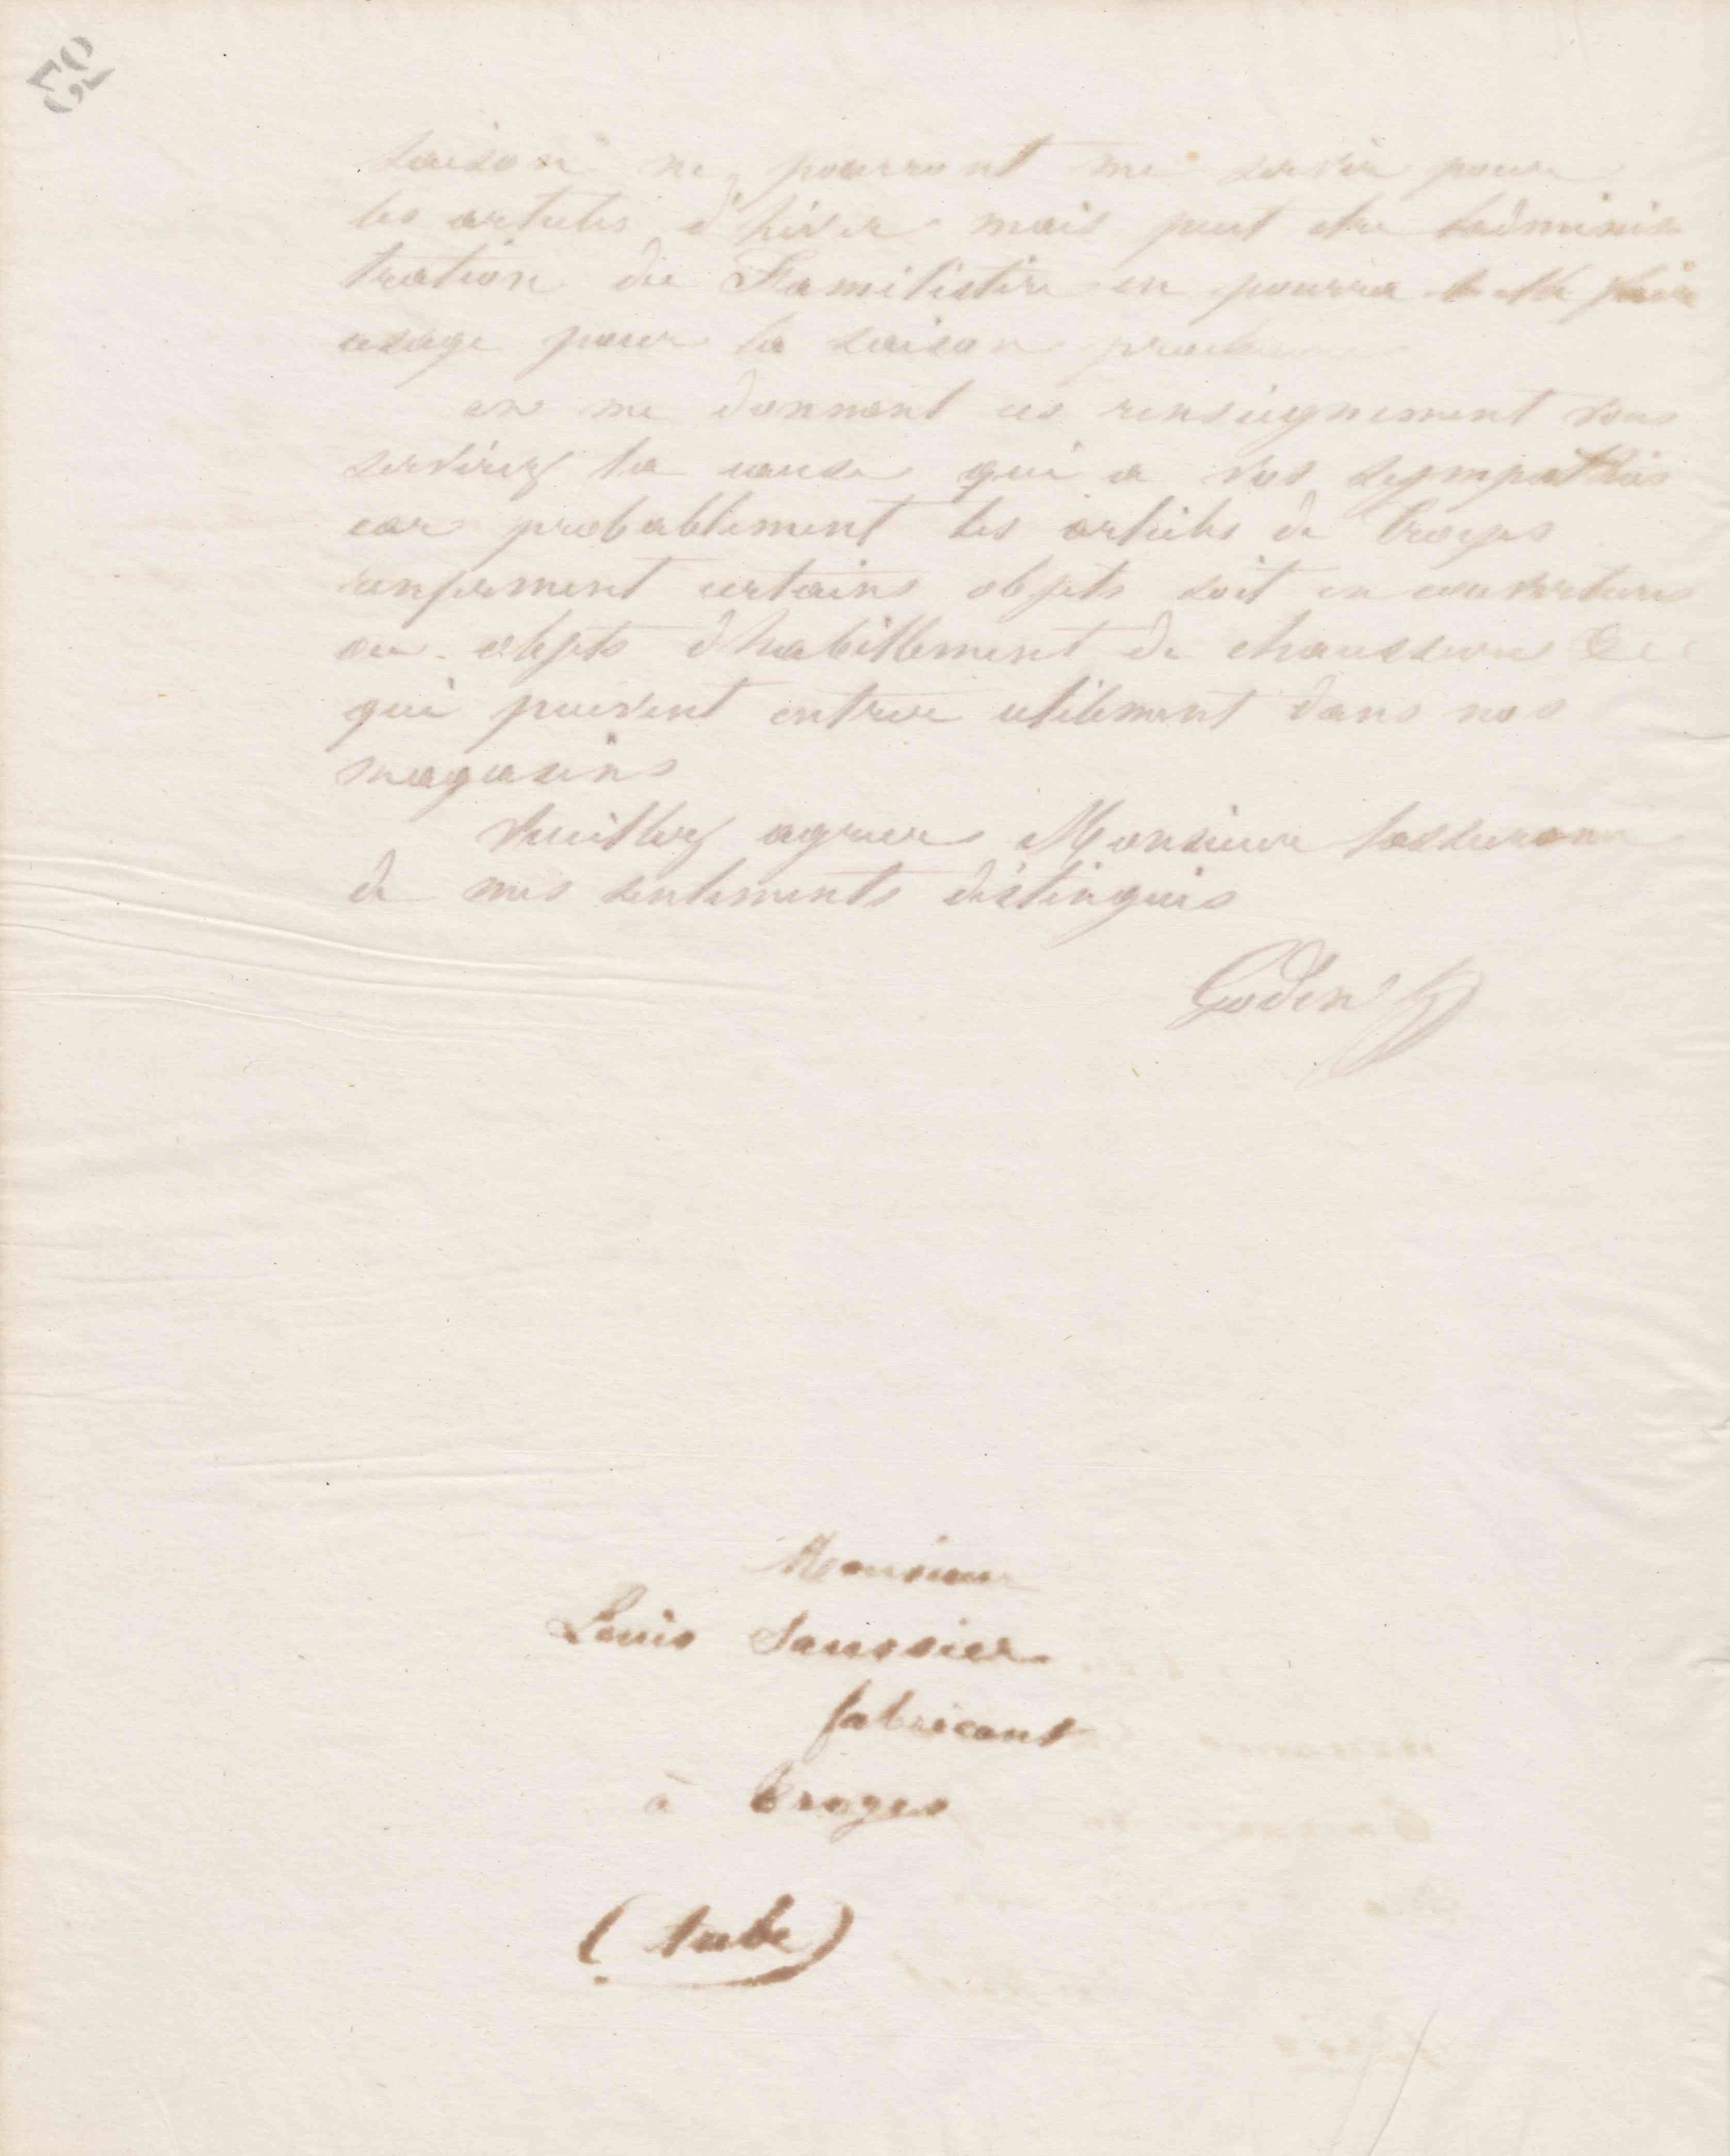 59
saison ne pourront me servir pour
les articles d'hiver mais peut etre l'adminis
tration du Familistère en pourra faire
usage pour la saison prochaine
en me donnant ces renseignement vous
servirez la cause qui a vos sympathies
car probablement les articles de Troyes
renferment certains objets soit en couvertures
ou objets d'habillement de chaussures &c
qui puissent entrer utilement dans nos
magasins
Veuillez agreer Monsieur l'assurance
de mes sentiments distingués
Godin
Monsieur
Louis Saussier
fabricant
à Troyes
(Aube)